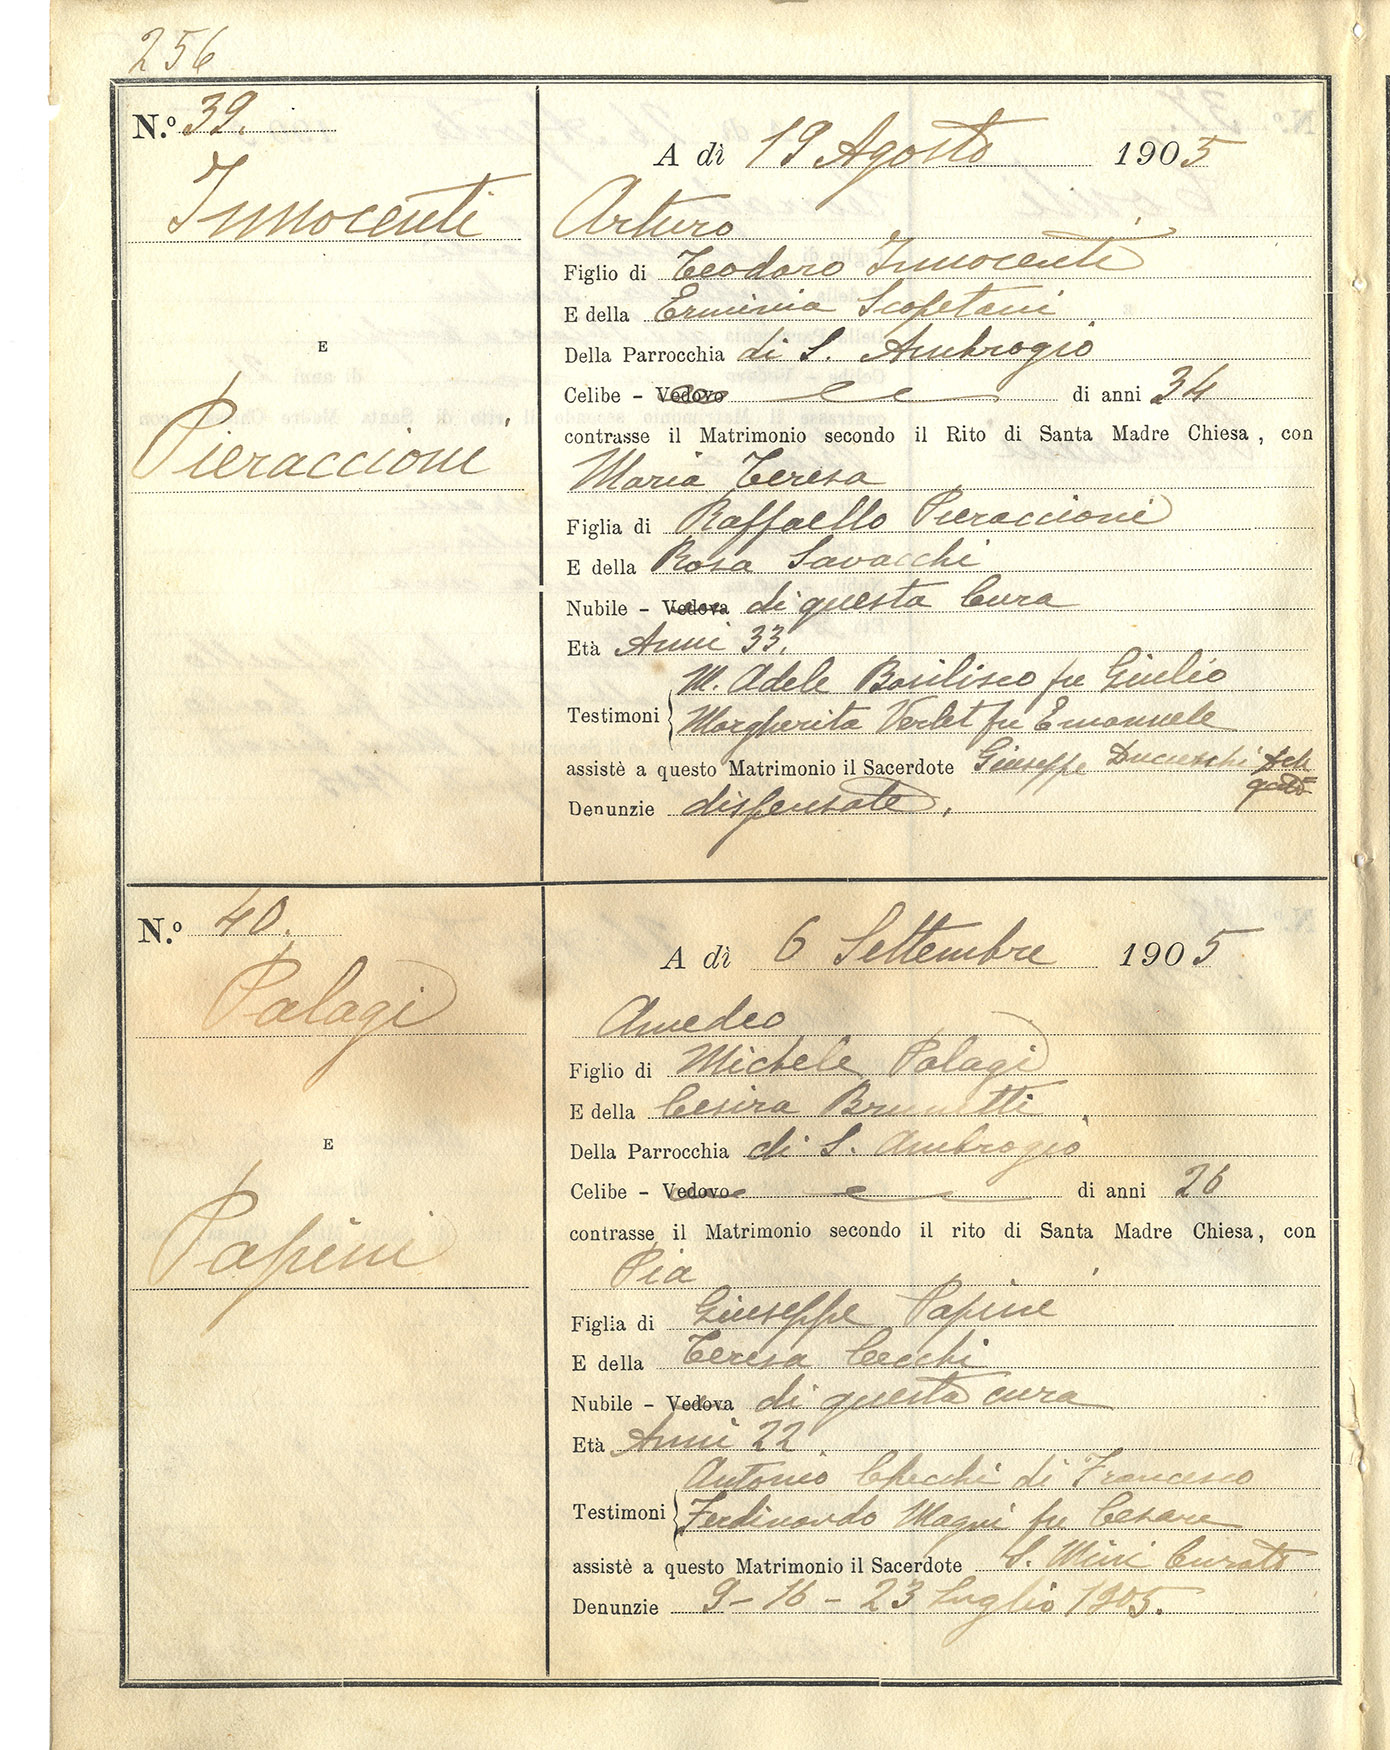 256
N.º 39.
Innocenti
E
Pieraccioni
A dì 19 Agosto 1905
Arturo
Figlio di Teodoro Innocenti
E della Erminia Scopetani
Della Parrocchia di S. Ambrogio
Celibe - Vedovo di anni 34
contrasse il Matrimonio secondo il Rito di Santa Madre Chiesa, con
Maria Teresa
Figlia di Raffaello Pieraccioni
E della Rosa Savacchi
Nubile - Vedova di questa Cura
Età Anni 33.
M. Adele Basilisco fu Giulio
Testimoni Margherita Verlet fu Emanuele
assistè a questo Matrimonio il Sacerdote Giuseppe
Denunzie dispensate.
N.º 40.
Palagi
E
Papini
A dì 6 Settembre 1905
Amedeo
Figlio di Michele Palagi
E della Cesira Brunetti
Della Parrocchia di S. Ambrogio
Celibe - Vedovo di anni 26
contrasse il Matrimonio secondo il rito di Santa Madre Chiesa, con
Pia
Figlia di Giuseppe Papini
E della Teresa Cecchi
Nubile - Vedova di questa cura
Età Anni 22
Antonio Checchi di Francesco
Testimoni Ferdinando Magni fu Cesare
assistè a questo Matrimonio il Sacerdote S. Mini Curato
Denunzie 9 - 16 - 23 Luglio 1905.